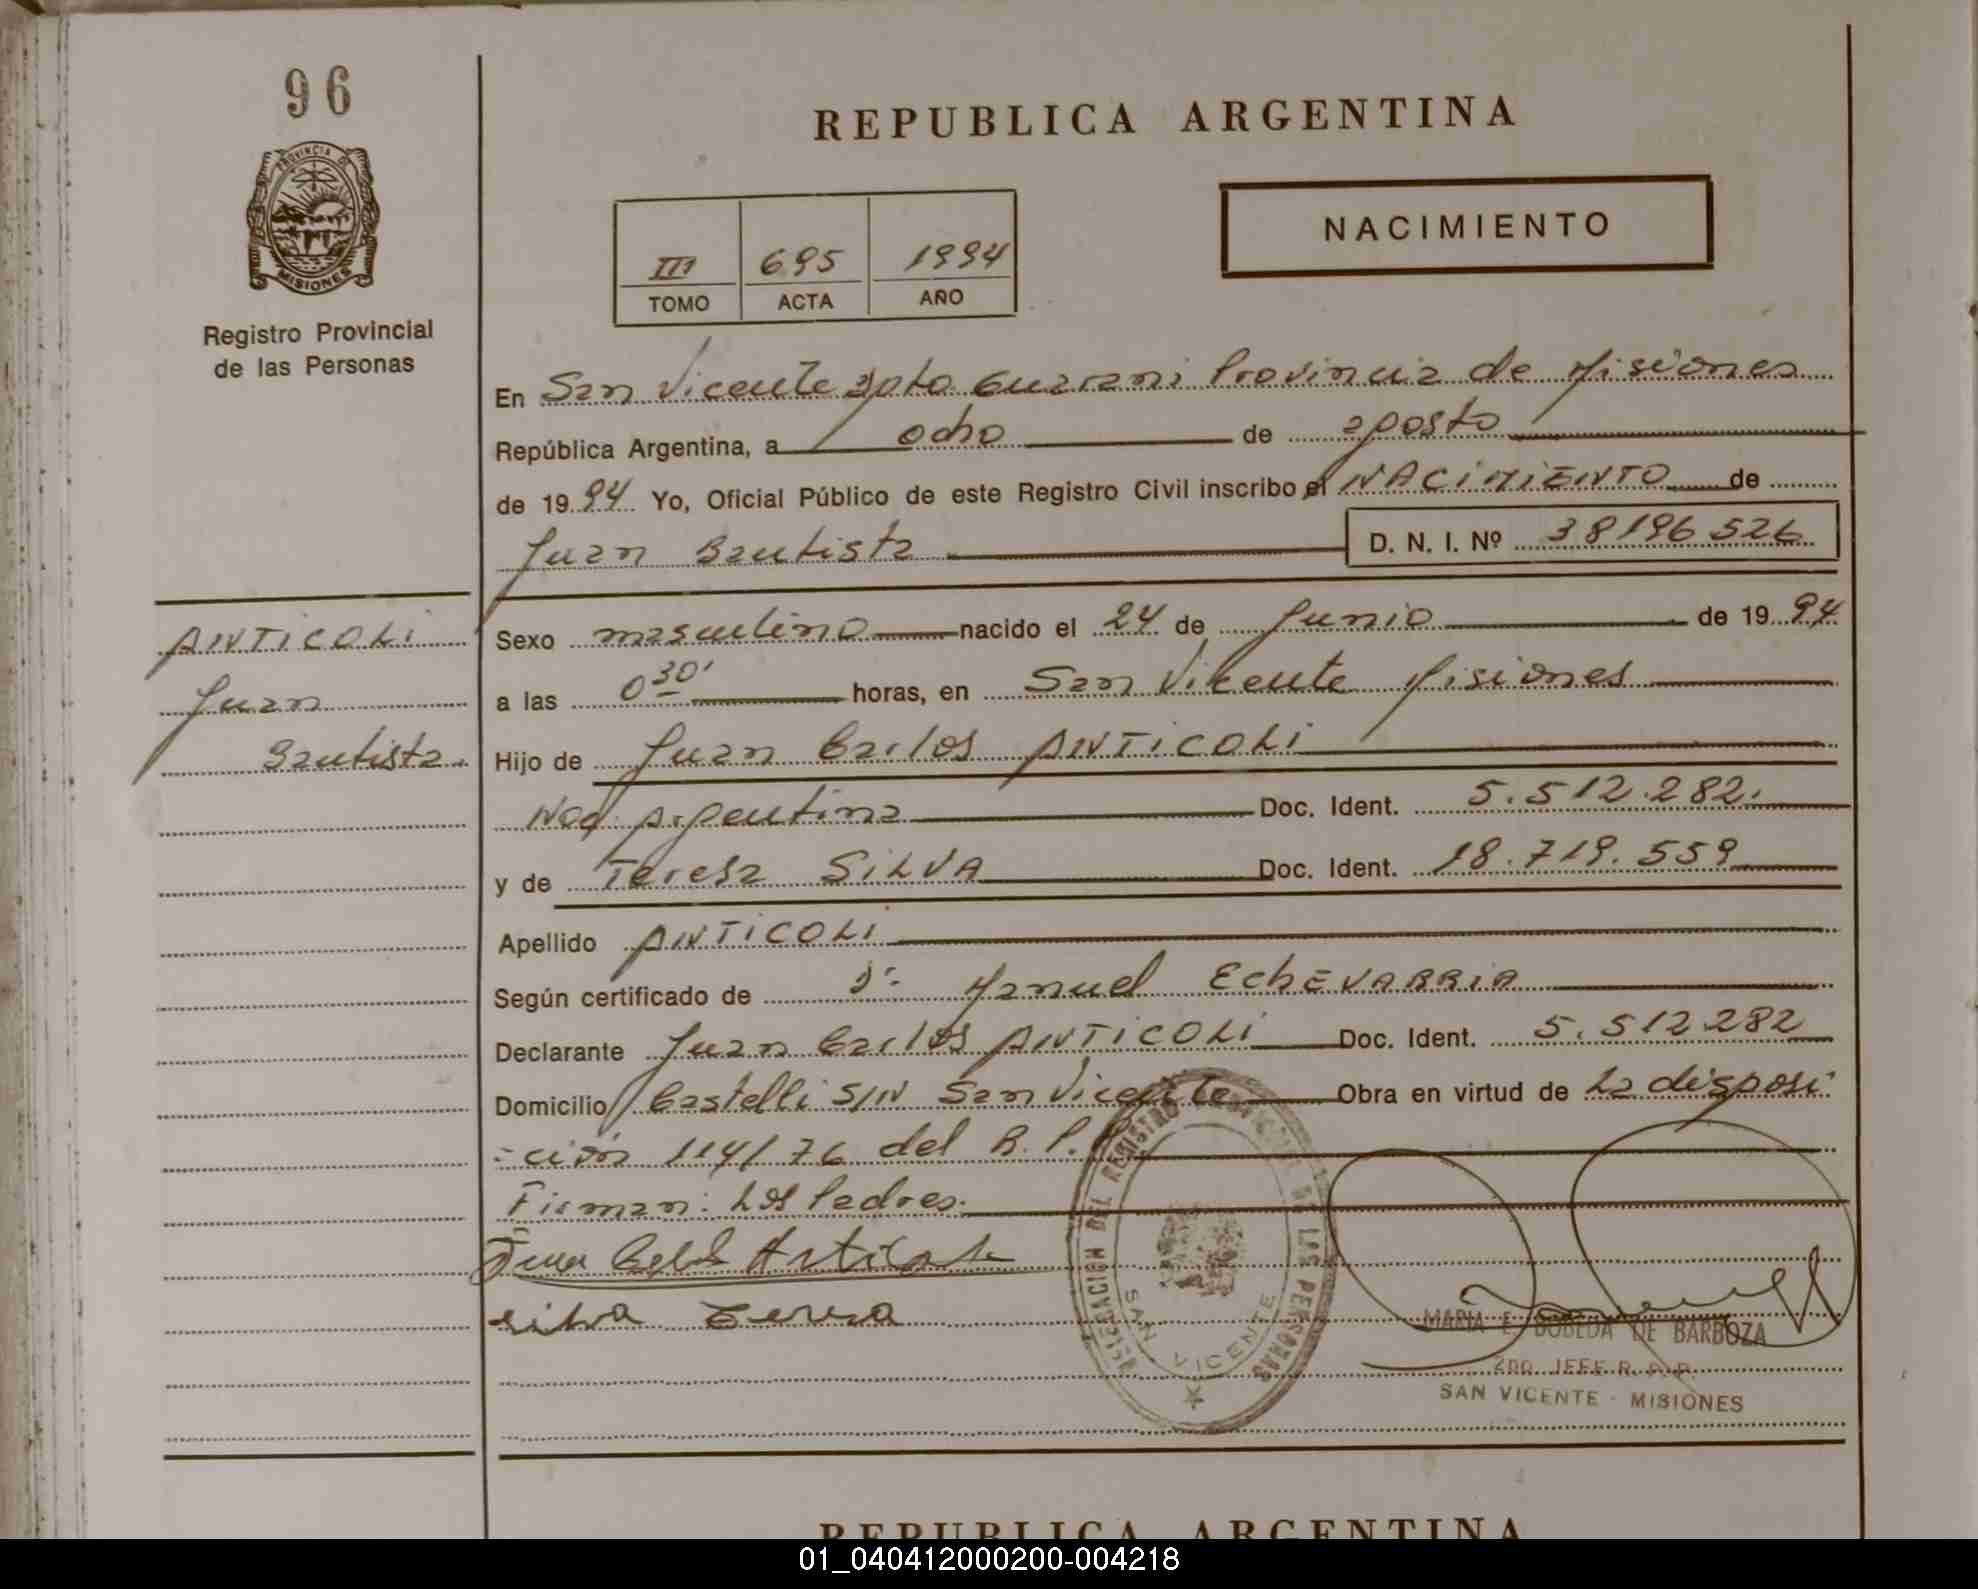 96
PROVINCIA DE
MISIONES
Registro Provincial
de las Personas
REPUBLICA ARGENTINA
NACIMIENTO
III 695 1994
TOMO ACTA AÑO
En San Vicente Dpto Guarani Provincia de Misiones
República Argentina, a ocho de agosto
de 1994 Yo, Oficial Público de este Registro Civil inscribo el NACIMIENTO de
Juan Bautista D. N. I. Nº 38196526
ANTICOLI
Juan
Bautista.
Sexo masculino nacido el 24 de Junio de 1994
a las 0 30' horas, en San Vicente Misiones
Hijo de Juan Carlos ANTICOLI
Nac. Argentina Doc. Ident. 5.512.282.
y de Teresa SILVA Doc. Ident. 18.719.559
Apellido ANTICOLI
Según certificado de Dr. Manuel EChEVARRIA
Declarante Juan Carlos ANTICOLI Doc. Ident. 5.512282
Domicilio Castelli S/N San Vicente Obra en virtud de La disposi
-ción 114/76 del R. P.
Firman: Los Padres.
Silva Teresa
DELEGACION DEL REGISTRO PROVINCIAL DE LAS PERSONAS
SAN VICENTE
MARIA E. BOBEDA DE BARBOZA
2DO. JEFE R. P. P.
SAN VICENTE - MISIONES
REPUBLICA ARGENTINA
01_040412000200-004218